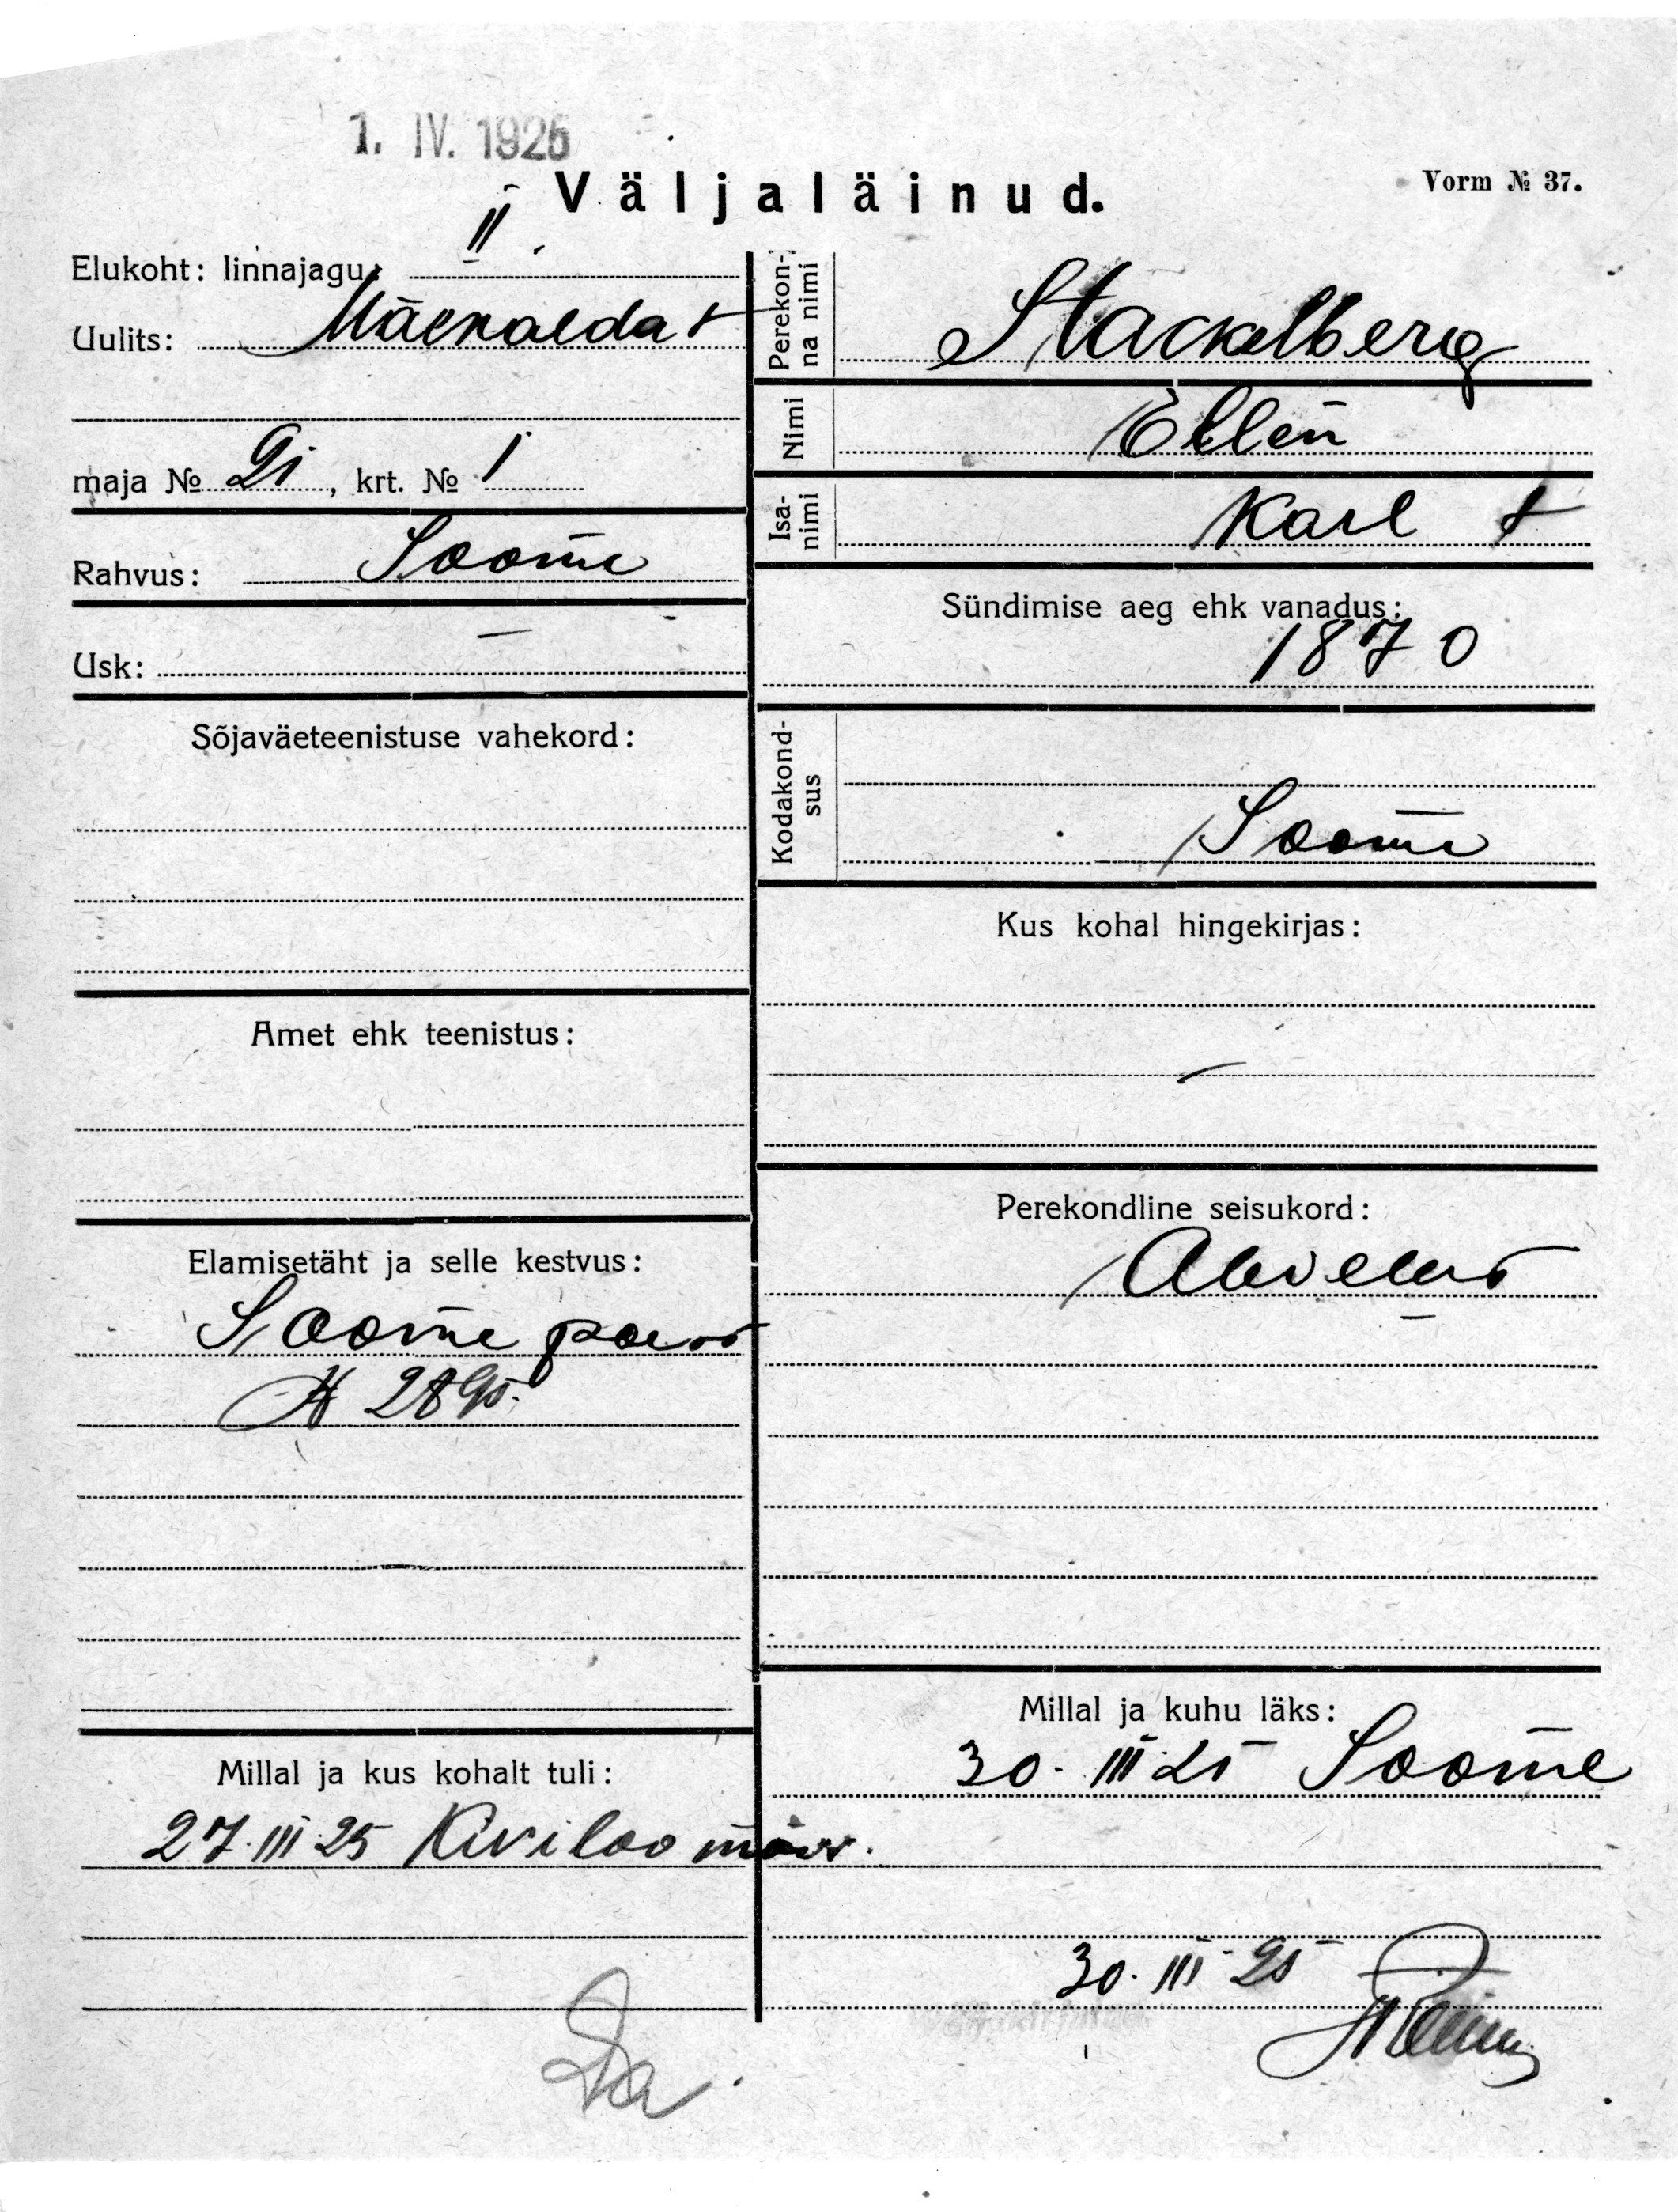 1. IV. 1925
Väljaläinud.
Vorm № 37.
Elukoht: linnajagu: II
Uulits: Mäekalda
maja № 21, krt. № 1
Rahvus: Soome
Usk: —
Sõjaväeteenistuse vahekord:
Amet ehk teenistus:
Elamisetäht ja selle kestvus:
Soome pass
2895.
Millal ja kus kohalt tuli:
27.III.25 Kiviloo mõis.
Perekon-
na nimi
Stackelberg
Nimi Ellen
Isa-
nimi
Karl
Sündimise aeg ehk vanadus:
1870
Kodakond-
sus
Soome
Kus kohal hingekirjas:
—
Perekondline seisukord:
Abielus
Millal ja kuhu läks:
30. III 25 Soome
30. III 25